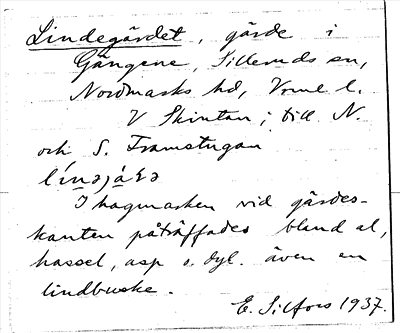 Lindegärdet, gärde i
Gängene, Silleruds sn,
Nordmarks hd, Vrml. l.
V Skintan; till N.
och S. Framstugan
I hagmarken vid gärdes-
kanten påträffades bland al,
hassel, asp o. dyl. även en
lindbuske.
E. Silfors 1937.